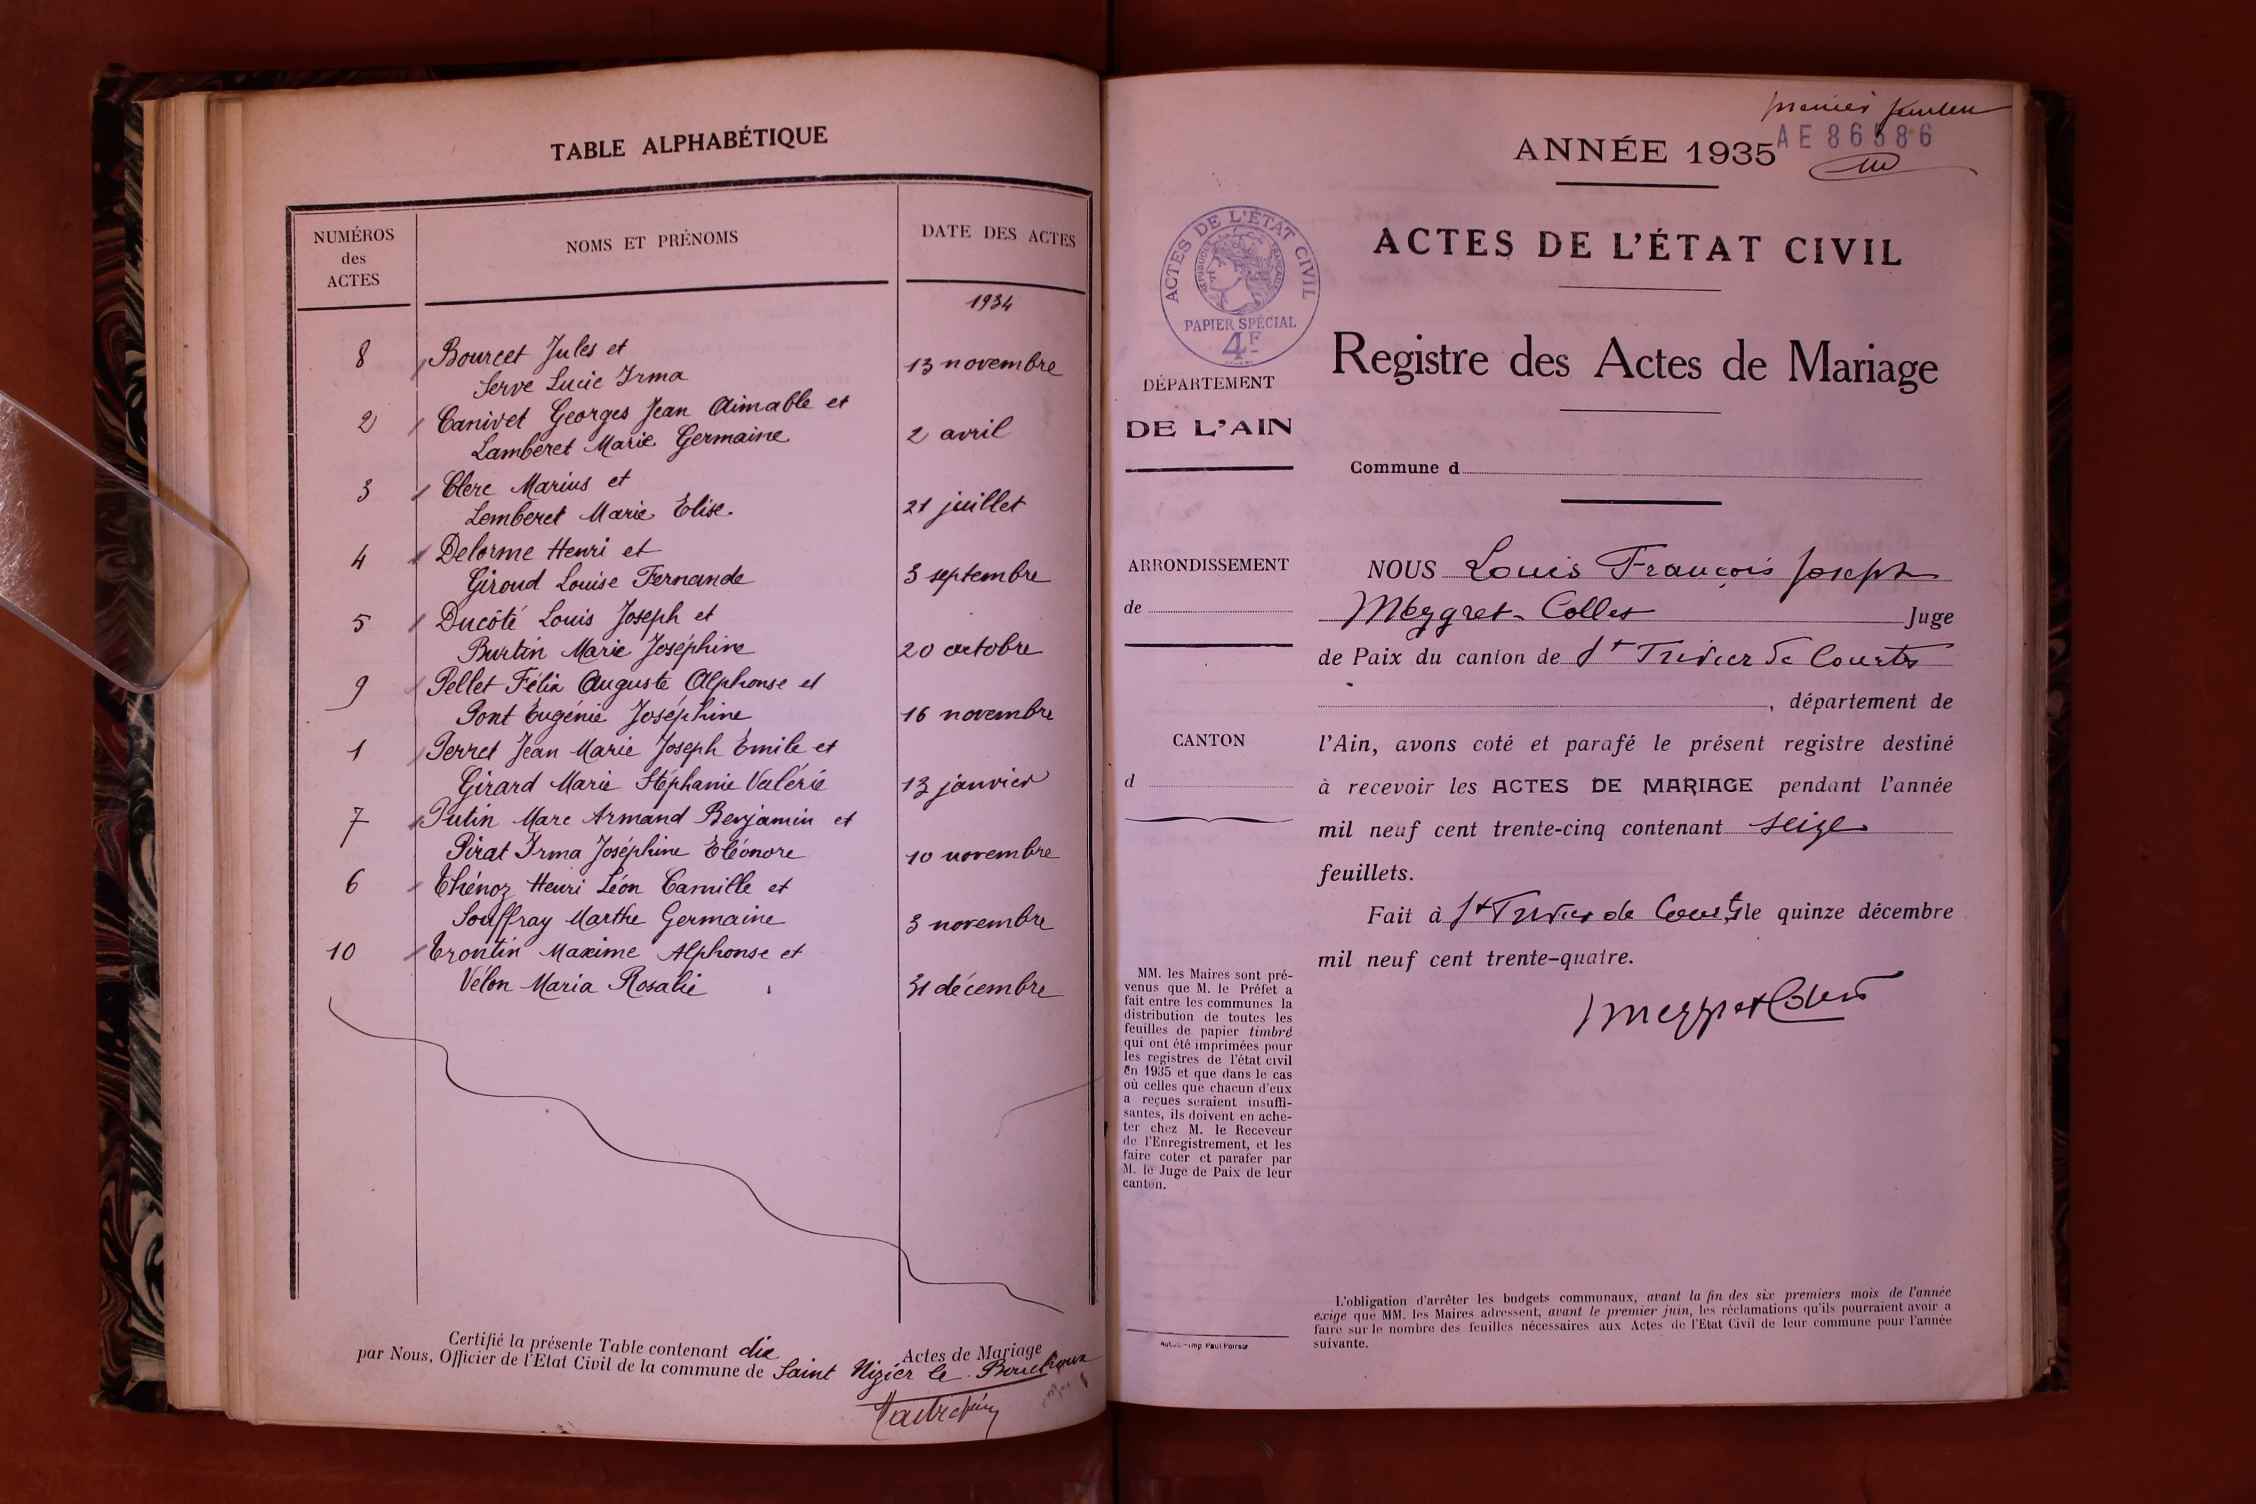 TABLE ALPHABÉTIQUE
NUMÉROS
des
ACTES
NOMS ET PRÉNOMS
DATE DES ACTES
1934
8 Bourcet Jules et
Serve Lucie Irma 13 novembre
2 Canivet Georges Jean Aimable et
Lamberet Marie Germaine 2 avril
3 Clerc Marius et
Lemberet Marie Elise. 21 juillet
4 Delorme Henri et
Giroud Louise Fernande 3 septembre
5 Ducôté Louis Joseph et
Burtin Marie Joséphine 20 octobre
9 Pellet Félix Auguste Alphonse et
Pont Eugénie Joséphine 16 novembre
1 Perret Jean Marie Joseph Emile et
Girard Marie Stéphanie Valérie 13 janvier
7 Putin Marc Armand Benjamin et
Pirat Irma Joséphine Eléonore 10 novembre
6 Thénoz Henri Léon Camille et
Souffray Marthe Germaine 3 novembre
10 Trontin Maxime Alphonse et
Vélon Maria Rosalie 31 décembre
Certifié la présente Table contenant dix Actes de Mariage
par Nous, Officier de l'Etat Civil de la commune de Saint Nizier le Bouchoux
premier
ANNÉE 1935
AE 86586
ACTES DE L'ÉTAT CIVIL
RÉPUBLIQUE FRANÇAISE
PAPIER SPÉCIAL
4F
ACTES DE L'ÉTAT CIVIL
Registre des Actes de Mariage
DÉPARTEMENT
DE L'AIN
Commune d
ARRONDISSEMENT
de
CANTON
d
NOUS Louis François Joseph
Mezgret-Collet Juge
de Paix du canton de St Trivier de Courtes
, département de
l'Ain, avons coté et parafé le présent registre destiné
à recevoir les ACTES DE MARIAGE pendant l'année
mil neuf cent trente-cinq contenant seize
feuillets.
Fait à St Trivier de Courtes le quinze décembre
mil neuf cent trente-quatre.
MM. les Maires sont pré-
venus que M. le Préfet a
fait entre les communes la
distribution de toutes les
feuilles de papier timbré
qui ont été imprimées pour
les registres de l'état civil
en 1935 et que dans le cas
où celles que chacun d'eux
a reçues seraient insuffi-
santes, ils doivent en ache-
ter chez M. le Receveur
de l'Enregistrement, et les
faire coter et parafer par
M. le Juge de Paix de leur
canton.
L'obligation d'arrêter les budgets communaux, avant la fin des six premiers mois de l'année
exige que MM. les Maires adressent, avant le premier juin, les réclamations qu'ils pourraient avoir à
faire sur le nombre des feuilles nécessaires aux Actes de l'Etat Civil de leur commune pour l'année
suivante.